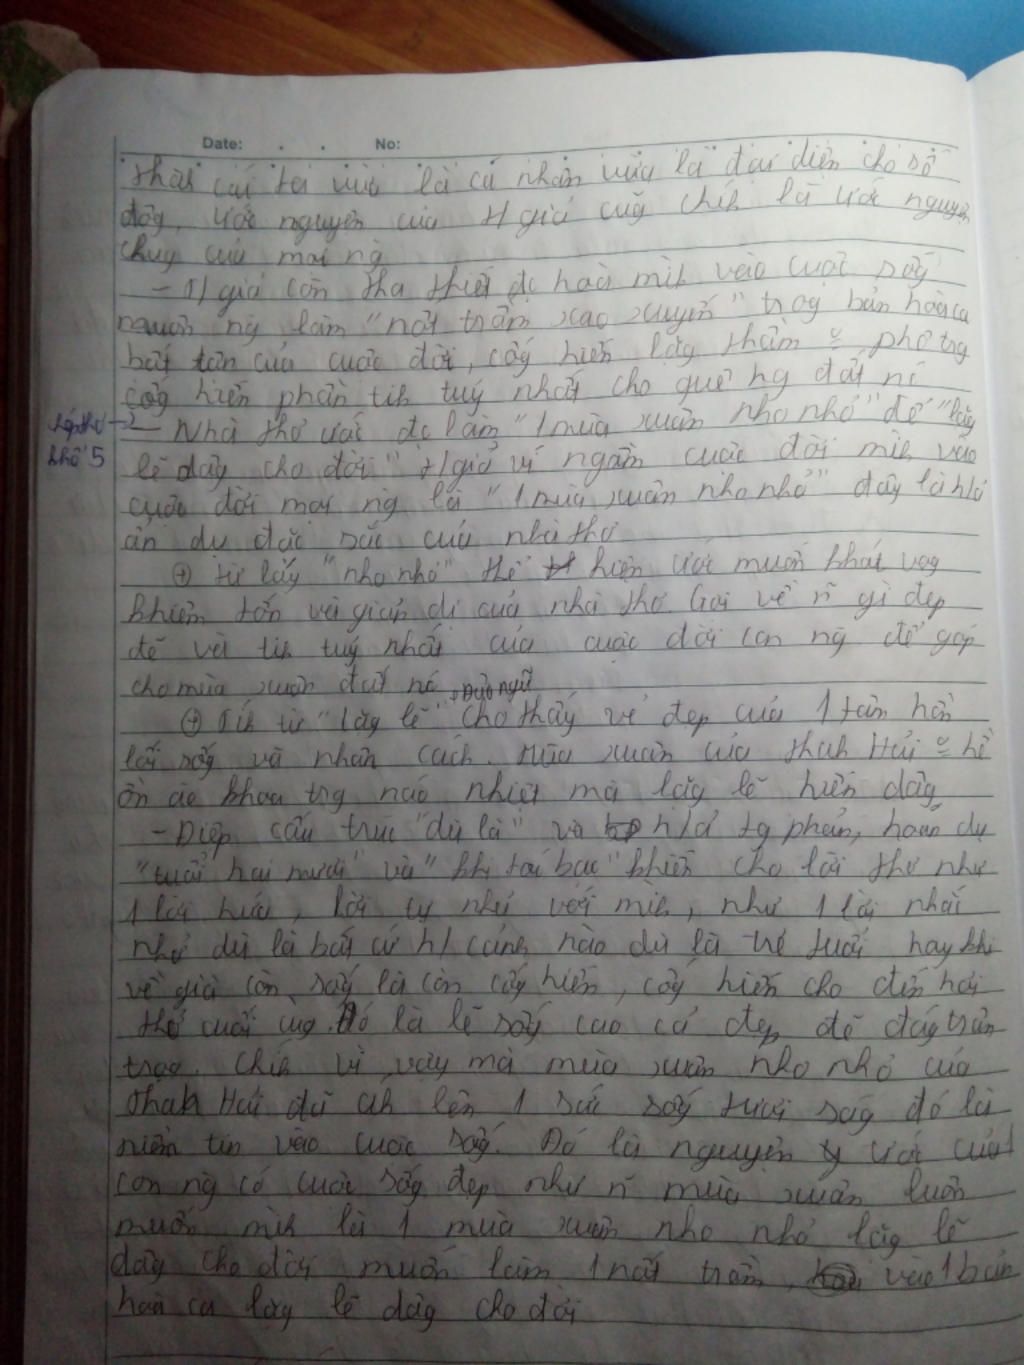 Date: . . No:
thành cái tôi vừa là cá nhân vừa là đại diện cho số
đôg, ước nguyện của t/giả cũg chíh là ước nguyện
chug của mọi ng
- T/giả còn tha thiết đc hoà mìh vào cuộc sốg
ng làm "nốt trầm xao xuyến" trog bản hoà ca
bất tận của cuộc đời, cốg hiến lặg thầm phô trg
cốg hiến phần tih tuý nhất cho quê hg đất nc
- Nhà thơ ước đc làm "1 mùa xuân nho nhỏ" để "lặg
khổ 5
lẽ dâg cho đời" t/giả ví ngầm cuộc đời mìh vào
cuộc đời mọi ng là "1 mùa xuân nho nhỏ" đây là h/ả
ẩn dụ đặc sắc của nhà thơ
+ Từ láy "nho nhỏ" thể hiện ước muốn khát vọg
khiêm tốn và giản dị của nhà thơ. Gợi về n~ gì đẹp
đẽ và tih tuý nhất của cuộc đời con ng để góp
cho mùa xuân đất nc
, Đảo ngữ
+ Tíh từ "lặg lẽ" cho thấy vẻ đẹp của 1 tâm hồn
lối sốg và nhân cách. Mùa xuân của Thah Hải hề
ồn ào khoa trg náo nhiệt mà lặg lẽ hiến dâg
- Điệp cấu trúc "dù là" và h/ả tg phản, hoán dụ
"tuổi hai mươi" và "khi tóc bạc" khiến cho lời thơ như
1 lời hứa, lời tự nhủ với mìh, như 1 lời nhắc
nhở dù là bất cứ h/cảnh nào dù là trẻ tuổi hay khi
về già còn sốg là còn cốg hiến, cốg hiến cho đến hơi
thở cuối cùg. Đó là lẽ sốg cao cả đẹp đẽ đág trân
trọg. Chíh vì vậy mà mùa xuân nho nhỏ của
Thah Hải đã áh lên 1 sức sốg tươi ság đó là
niềm tin vào cuộc sốg. Đó là nguyện ước của 1
con ng có cuộc sốg đẹp như n~ mùa xuân luôn
muốn mìh là 1 mùa xuân nho nhỏ lặg lẽ
dâg cho đời muốn làm 1 nốt trầm, vào 1 bản
hoà ca lặg lẽ dâg cho đời